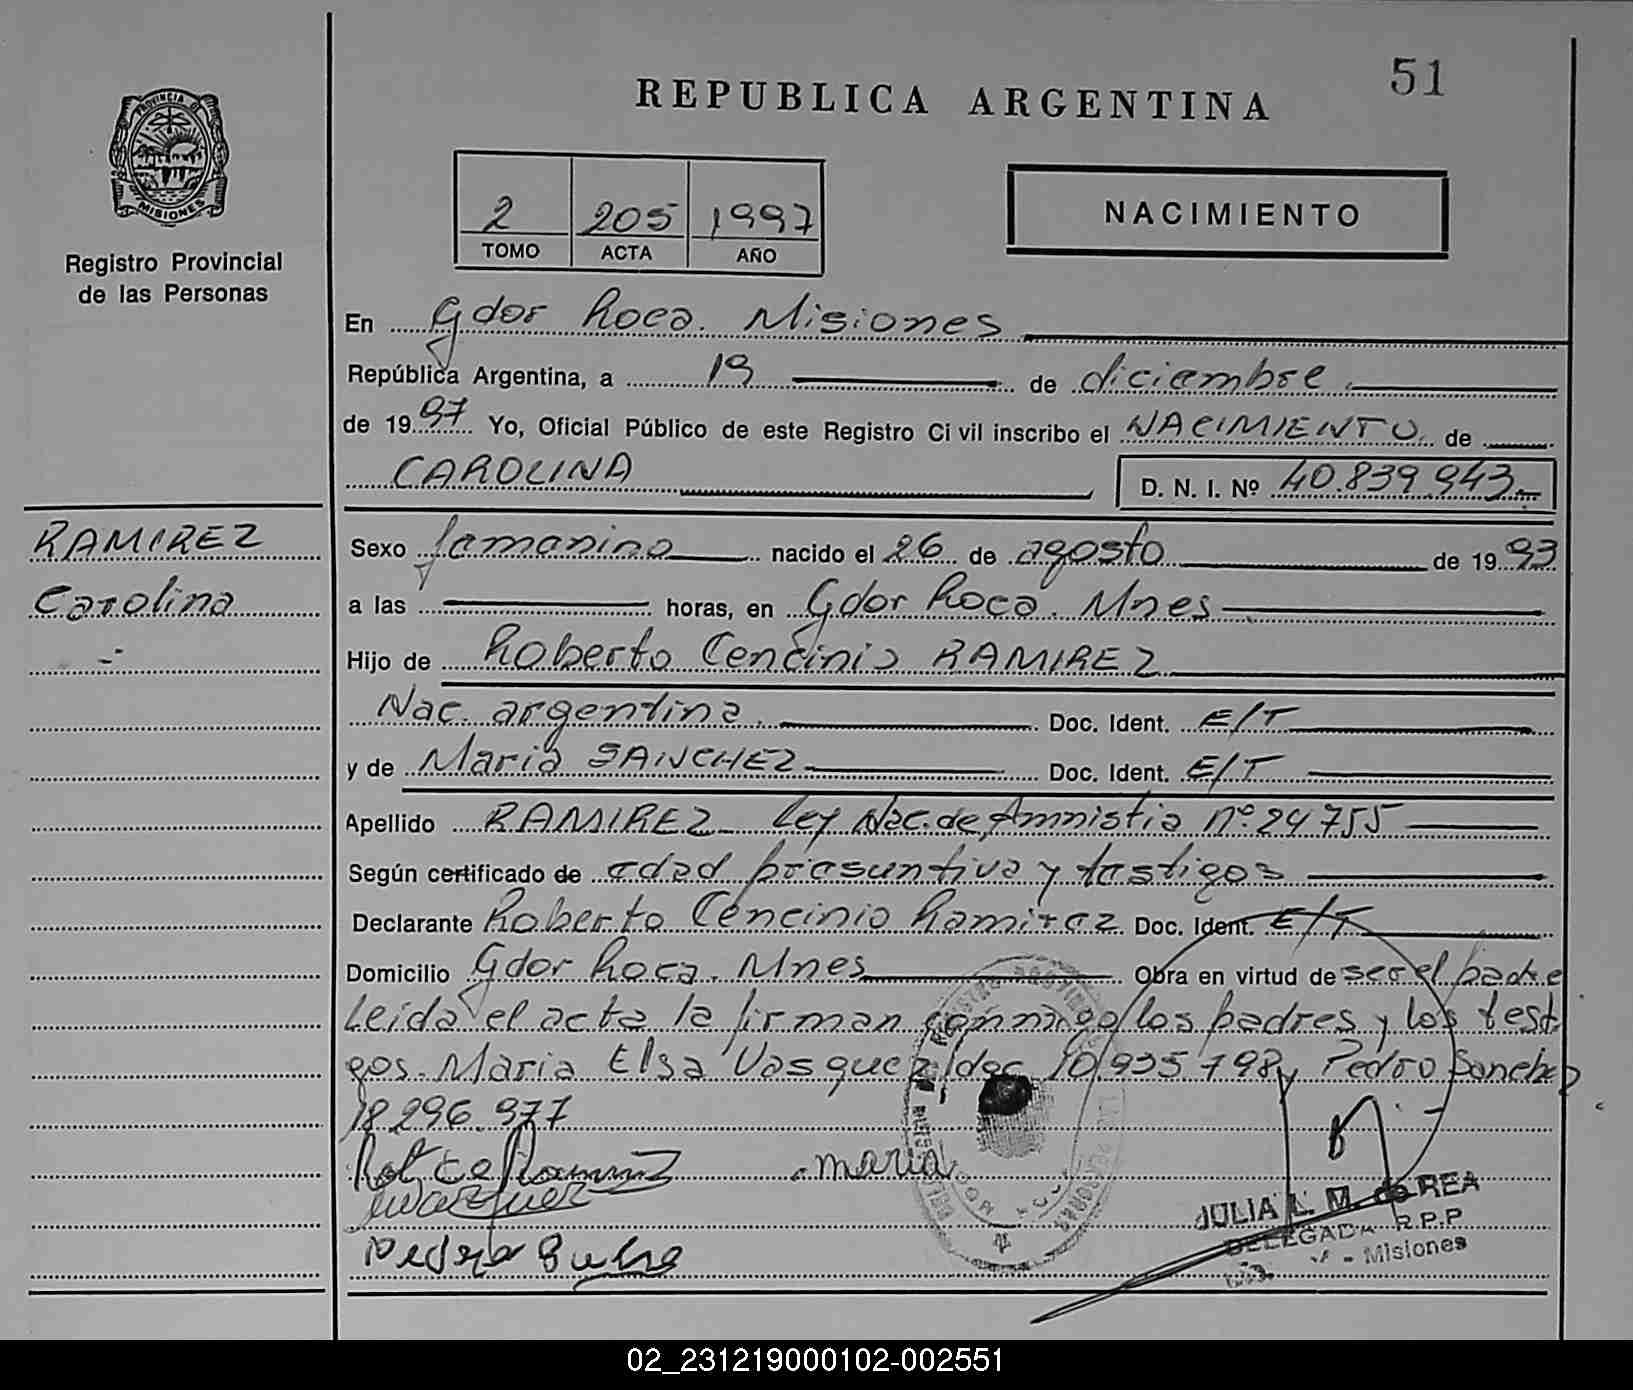 51
REPUBLICA ARGENTINA
PROVINCIA DE
MISIONES
Registro Provincial
de las Personas
2 205 1997
TOMO ACTA AÑO
NACIMIENTO
En Gdor Roca. Misiones
República Argentina, a 19 de diciembre.
de 1997 Yo, Oficial Público de este Registro Civil inscribo el NACIMIENTO de
CAROLINA D. N. I. Nº 40.839.943.-
RAMIREZ
Carolina
Sexo femenino nacido el 26 de agosto de 1993
a las horas, en Gdor Roca. Mnes
Hijo de Roberto Cencinio RAMIREZ
Nac. argentina. Doc. Ident. E/T
y de Maria SANCHEZ Doc. Ident. E/T
Apellido RAMIREZ Ley Nac. de Amnistia nº 24755
Según certificado de edad presuntiva y testigos
Declarante Roberto Cencinio Ramirez Doc. Ident. E/T
Domicilio Gdor Roca. Mnes Obra en virtud de ser el padre
Leida el acta la firman conmigo los padres y los testi
gos. Maria Elsa Vasquez doc 10.935.798 y Pedro Sanchez
18.296.977
maria
JULIA L. M. de REA
DELEGADA R.P.P
- Misiones
02_231219000102-002551